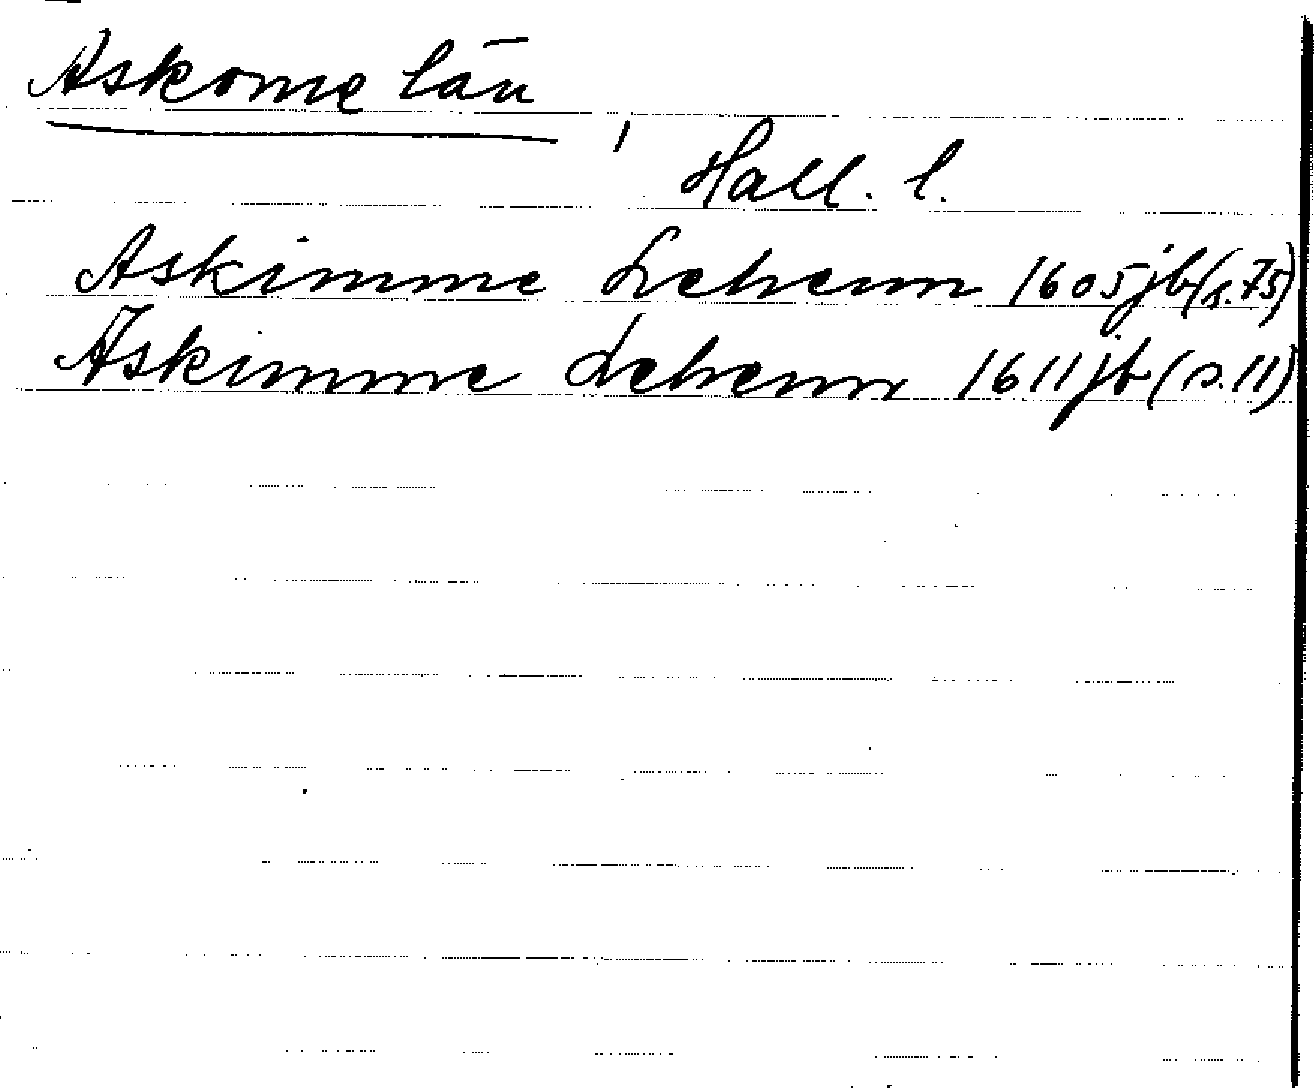 Askome län,
Hall. l.
Askimme Lehenn 1605 jb (s. 75)
Askimme Lehenn 1611 jb (s. 11)